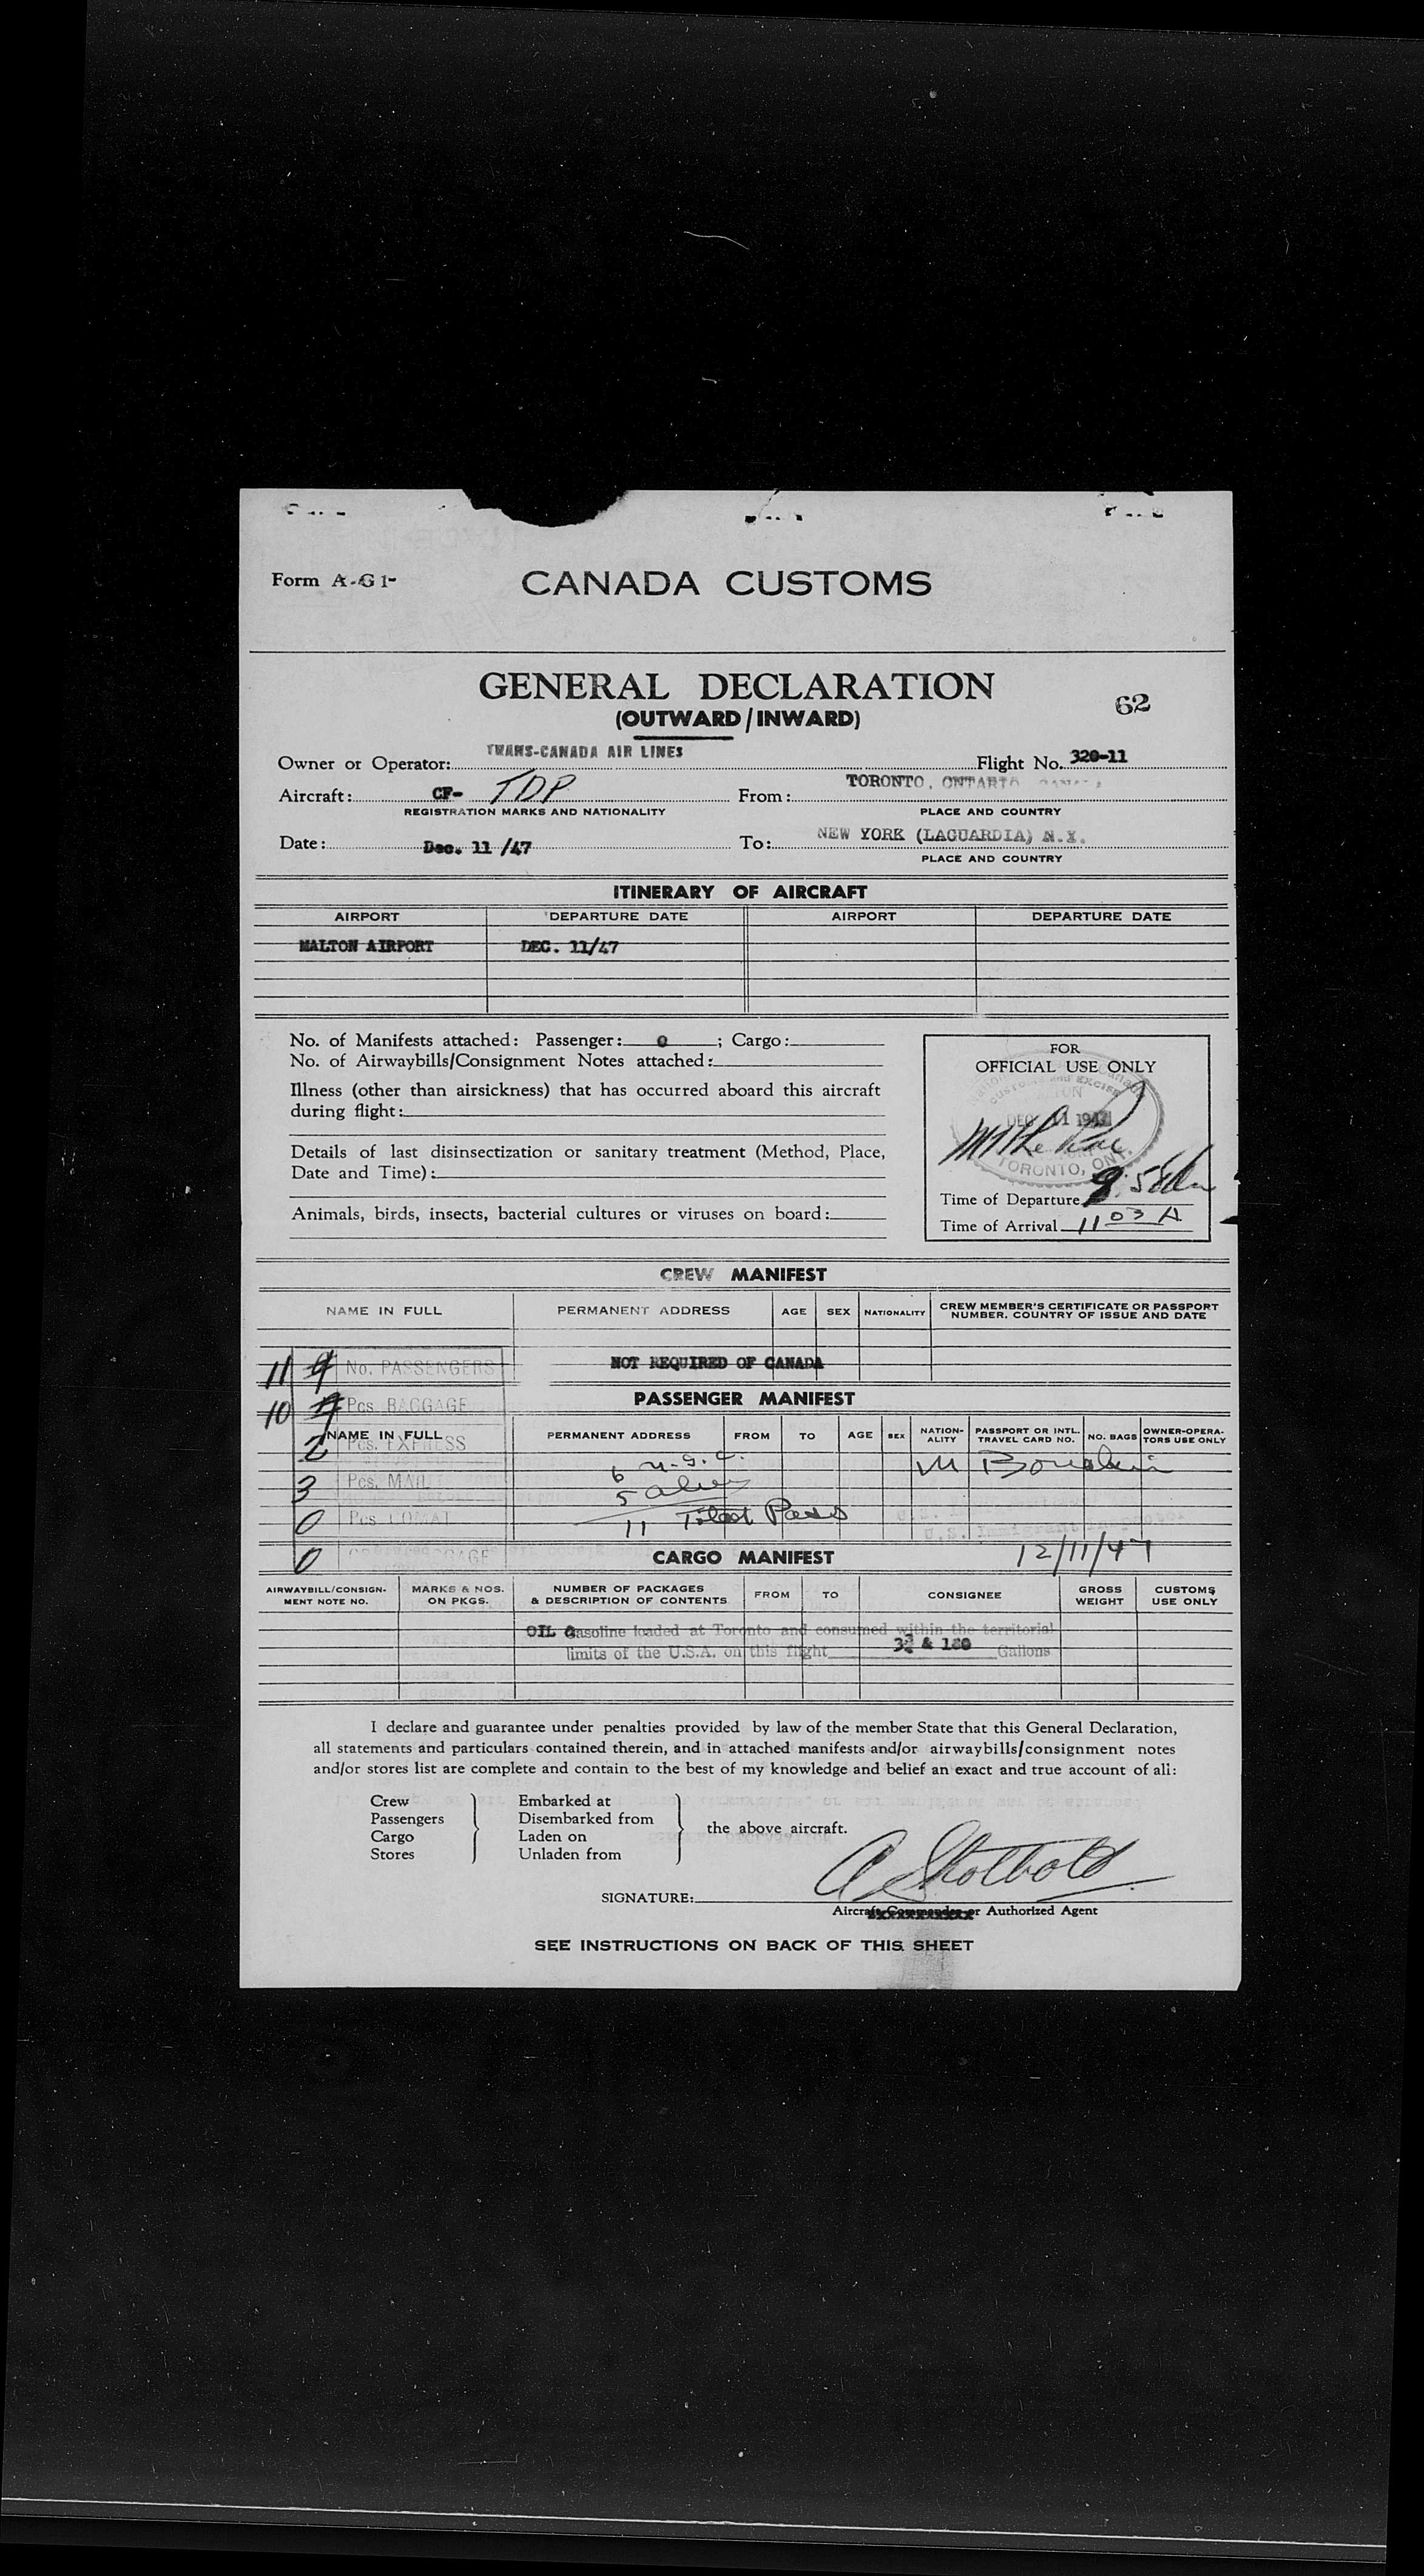 Form A-G1-
CANADA CUSTOMS
GENERAL DECLARATION
(OUTWARD/INWARD)
62
Owner or Operator: TRANS-CANADA AIR LINES Flight No. 320-11
Aircraft: CF- TDP From: TORONTO, ONTARIO
REGISTRATION MARKS AND NATIONALITY PLACE AND COUNTRY
Date: Dec. 11 /47 To: NEW YORK (LAGUARDIA) N.Y.
PLACE AND COUNTRY
ITINERARY OF AIRCRAFT
AIRPORT DEPARTURE DATE AIRPORT DEPARTURE DATE
MALTON AIRPORT DEC. 11/47
No. of Manifests attached: Passenger: 0 ; Cargo:
No. of Airwaybills/Consignment Notes attached:
Illness (other than airsickness) that has occurred aboard this aircraft
during flight:
Details of last disinsectization or sanitary treatment (Method, Place,
Date and Time):
Animals, birds, insects, bacterial cultures or viruses on board:
FOR
OFFICIAL USE ONLY
Customs and Excise
DEC 11 1947
TORONTO, ONT.
Time of Departure
Time of Arrival 11 03 A
CREW MANIFEST
NAME IN FULL PERMANENT ADDRESS AGE SEX NATIONALITY CREW MEMBER'S CERTIFICATE OR PASSPORT
NUMBER, COUNTRY OF ISSUE AND DATE
11 9 No. PASSENGERS NOT REQUIRED OF CANADA
PASSENGER MANIFEST
10 Pcs. BAGGAGE
NAME IN FULL PERMANENT ADDRESS FROM TO AGE SEX NATION-
ALITY PASSPORT OR INTL.
TRAVEL CARD NO. NO. BAGS OWNER-OPERA-
TORS USE ONLY
2 Pcs. EXPRESS
6 U.S.C.
3 Pcs. MAIL 5 alien
0 Pcs. COMAT 11 Total Pass
U.S. Immigrant Inspector
0
CARGO MANIFEST 12/11/47
AIRWAYBILL/CONSIGN-
MENT NOTE NO. MARKS & NOS.
ON PKGS. NUMBER OF PACKAGES
& DESCRIPTION OF CONTENTS FROM TO CONSIGNEE GROSS
WEIGHT CUSTOMS
USE ONLY
OIL Gasoline loaded at Toronto and consumed within the territorial
limits of the U.S.A. on this flight & 180 Gallons
I declare and guarantee under penalties provided by law of the member State that this General Declaration,
all statements and particulars contained therein, and in attached manifests and/or airwaybills/consignment notes
and/or stores list are complete and contain to the best of my knowledge and belief an exact and true account of all:
Crew Embarked at
Passengers Disembarked from
Cargo Laden on
Stores Unladen from
the above aircraft.
SIGNATURE:
Aircraft Commander or Authorized Agent
SEE INSTRUCTIONS ON BACK OF THIS SHEET